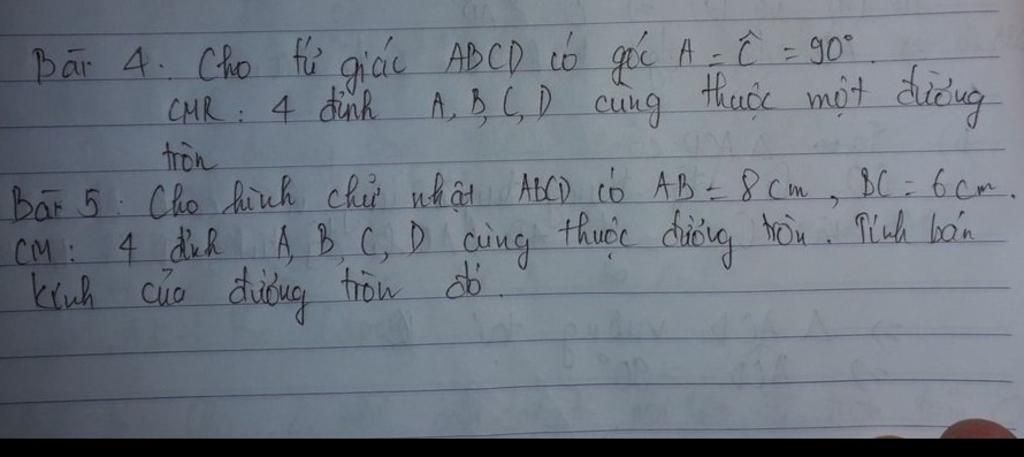 Bài 4. Cho tứ giác ABCD có góc A = Ĉ = 90°.
CMR : 4 đỉnh A, B, C, D cùng thuộc một đường
tròn
Bài 5 : Cho hình chữ nhật ABCD có AB = 8 cm , BC = 6 cm.
CM : 4 đỉnh A, B, C, D cùng thuộc đường tròn. Tính bán
kính của đường tròn đó.